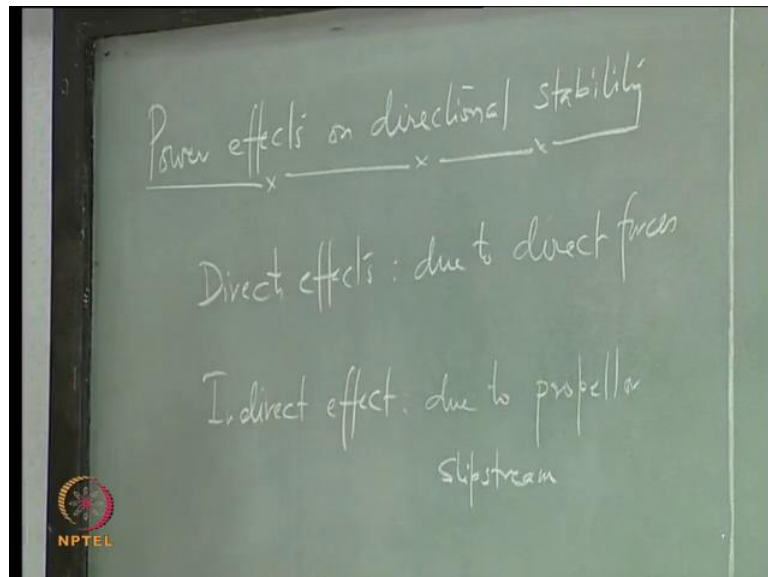 Power effects on directional stability
Direct effects : due to direct forces
Indirect effect : due to propellor
slipstream
NPTEL